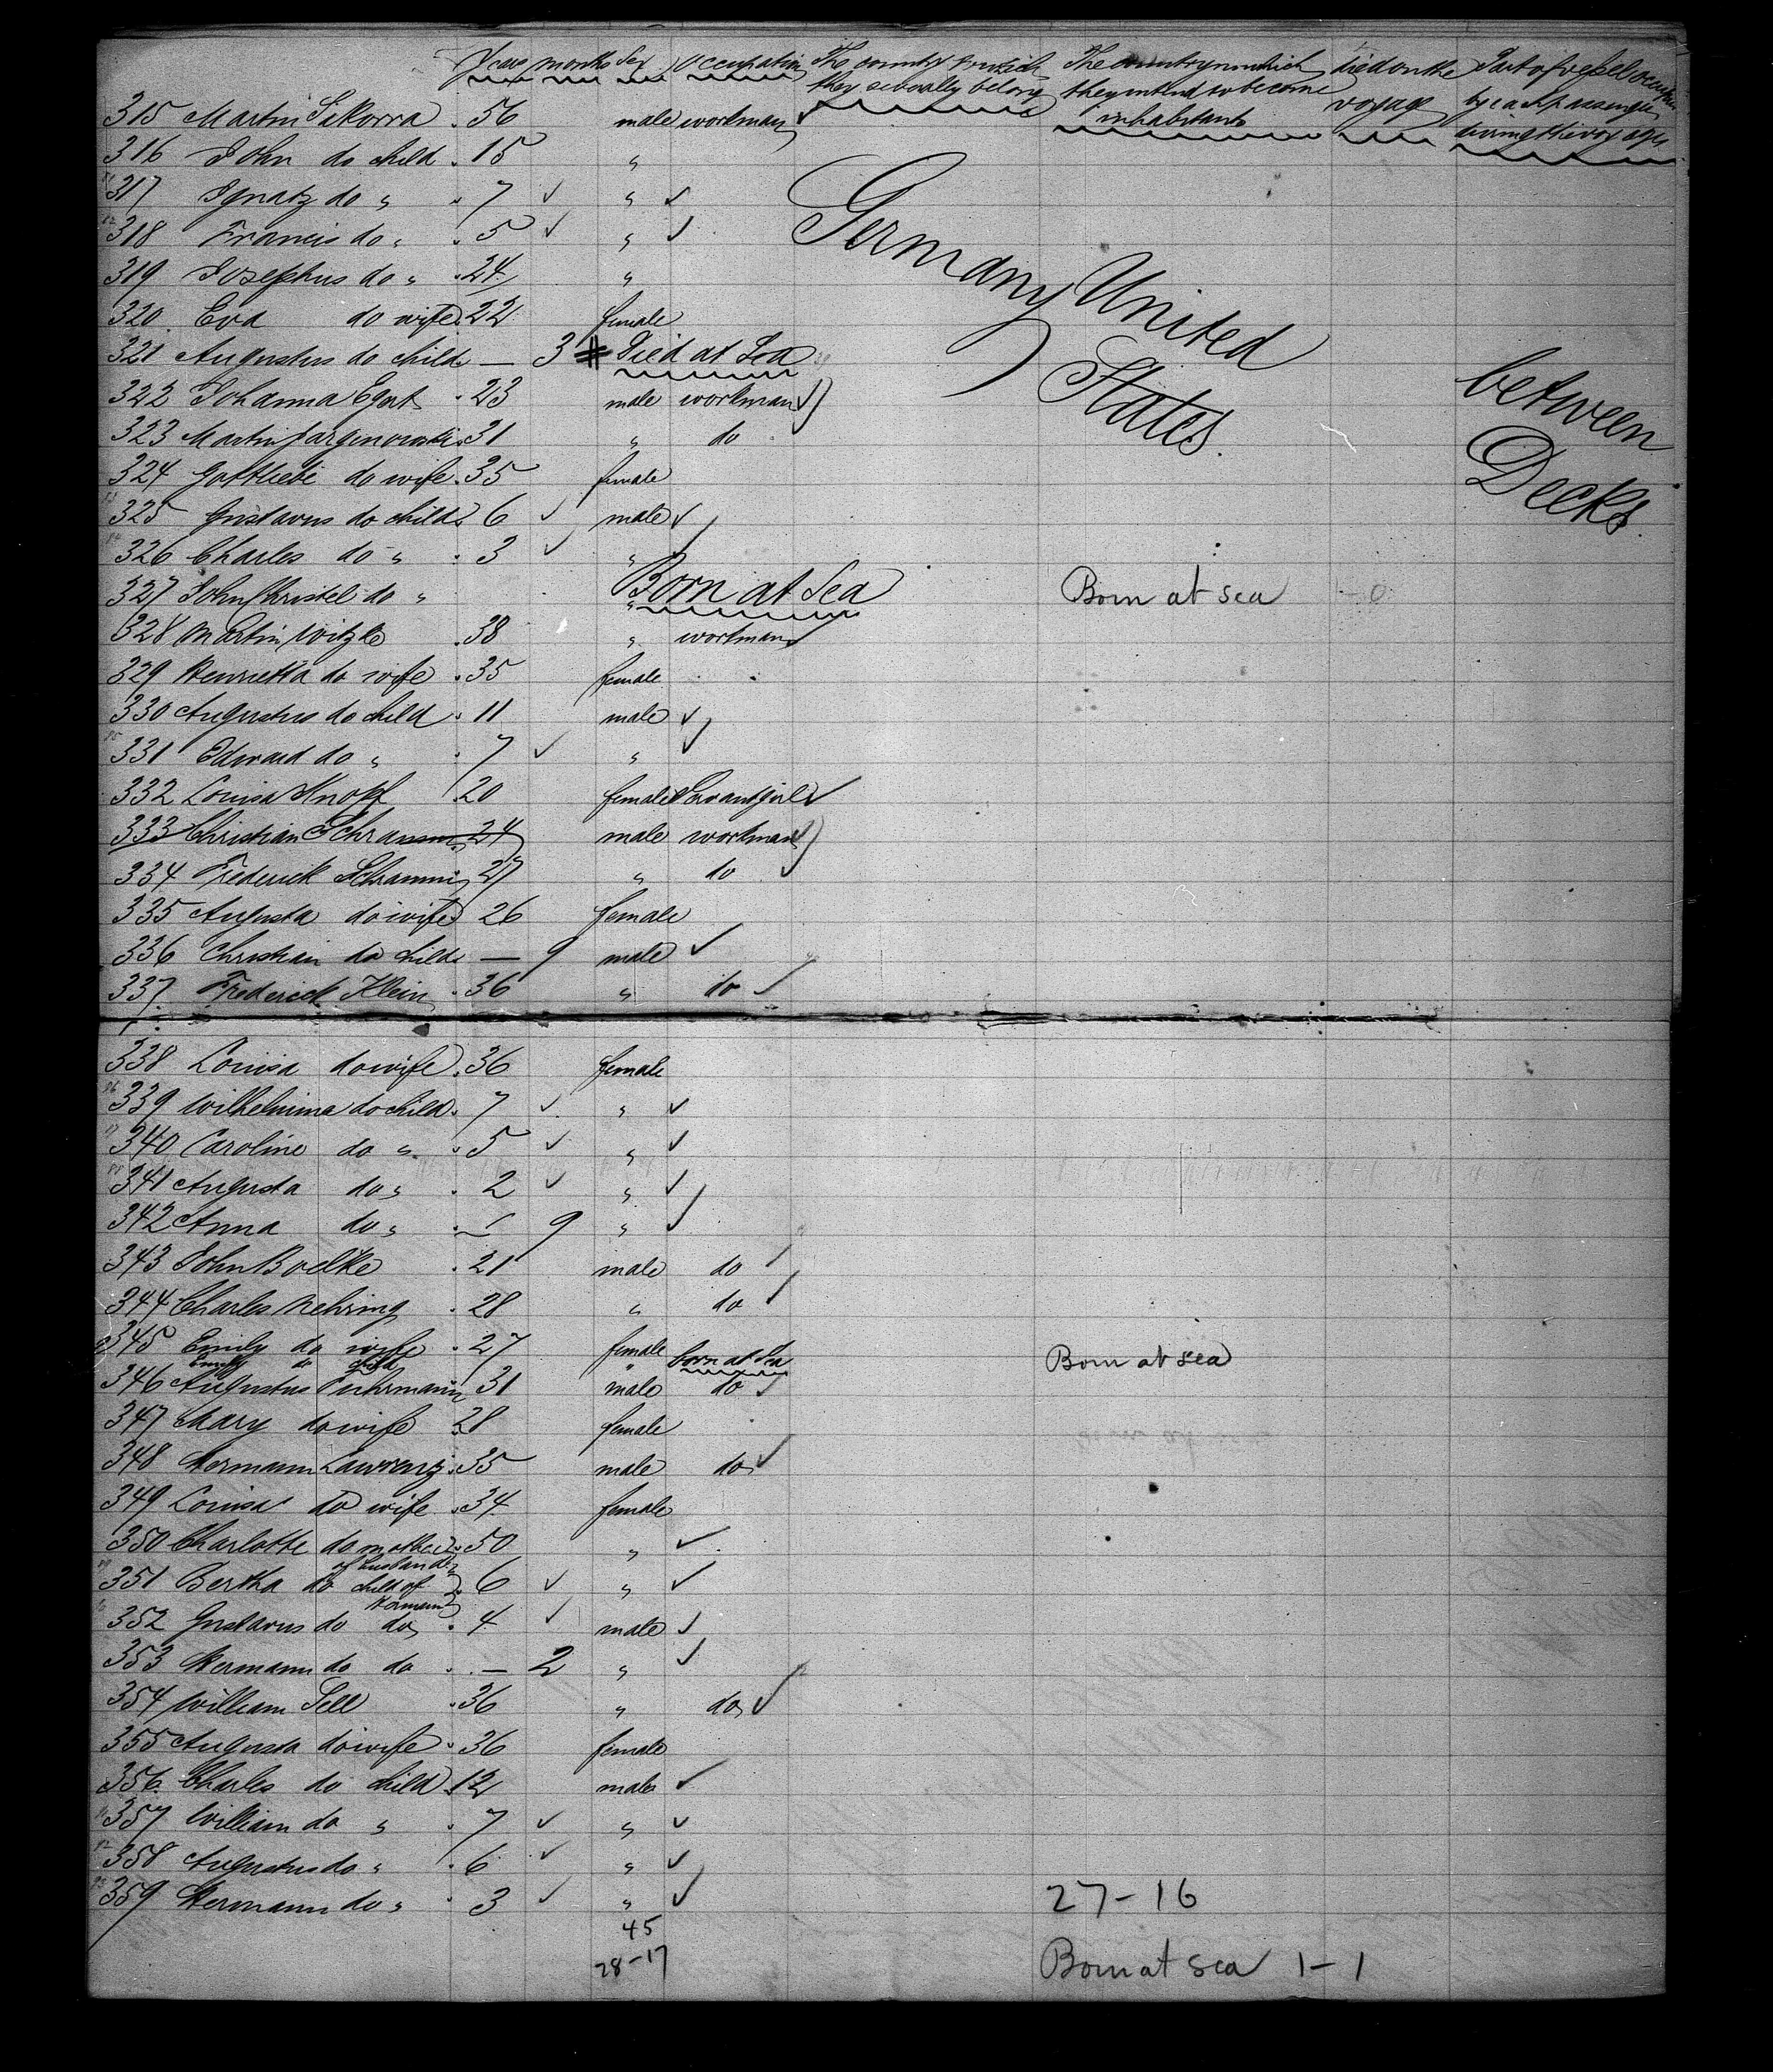 Years months Sex Occupation The country to which they severally belong The country in which they intend to become inhabitants died on the voyage Part of vessel occupied by each passenger during the voyage
315 Martin Sikorra 56 male workman
316 John do child 15 "
317 Ignatz do " 7 "
318 Francis do " 5 "
319 Josephus do " 24 "
Germany United States
320 Eva do wife 22 female
321 Augustus do child — 3 Died at Sea
between Decks
322 Johanna Egert 23 male workman
323 Martin 31 " do
324 Gottliebe do wife 35 female
325 Gustavus do child 6 male
326 Charles do " 3 "
327 John Christel do " Born at Sea Born at sea
328 Martin Witzke 38 " workman
329 Henrietta do wife 35 female
330 Augustus do child 11 male
331 Edward do " 7 "
332 Louisa Knopf 20 female Servantgirl
333 Christian Schramm 24 male workman
334 Frederick Schramm 27 " do
335 Augusta do wife 26 female
336 Christian do child — 9 male
337 Frederick Klein 36 " do
338 Louisa do wife 36 female
339 Wilhelmina do child 7 "
340 Caroline do " 5 "
341 Augusta do " 2 "
342 Anna do " — 9 "
343 John Boelke 21 male do
344 Charles Nehring 28 " do
345 Emily do wife 27 female
Emily do child " born at Sea Born at sea
346 Augustus Fuhrmann 31 male do
347 Mary do wife 28 female
348 Hermann Lawrenz 35 male do
349 Louisa do wife 34 female
350 Charlotte do mother of husband 50 "
351 Bertha do child of Hermann 6 "
352 Gustavus do do 4 male
353 Hermann do do — 2 "
354 William Sell 36 " do
355 Augusta do wife 36 female
356 Charles do child 12 male
357 William do " 7 "
358 Augustus do " 6 "
359 Hermann do " 3 "
27-16
45
28-17
Born at sea 1-1